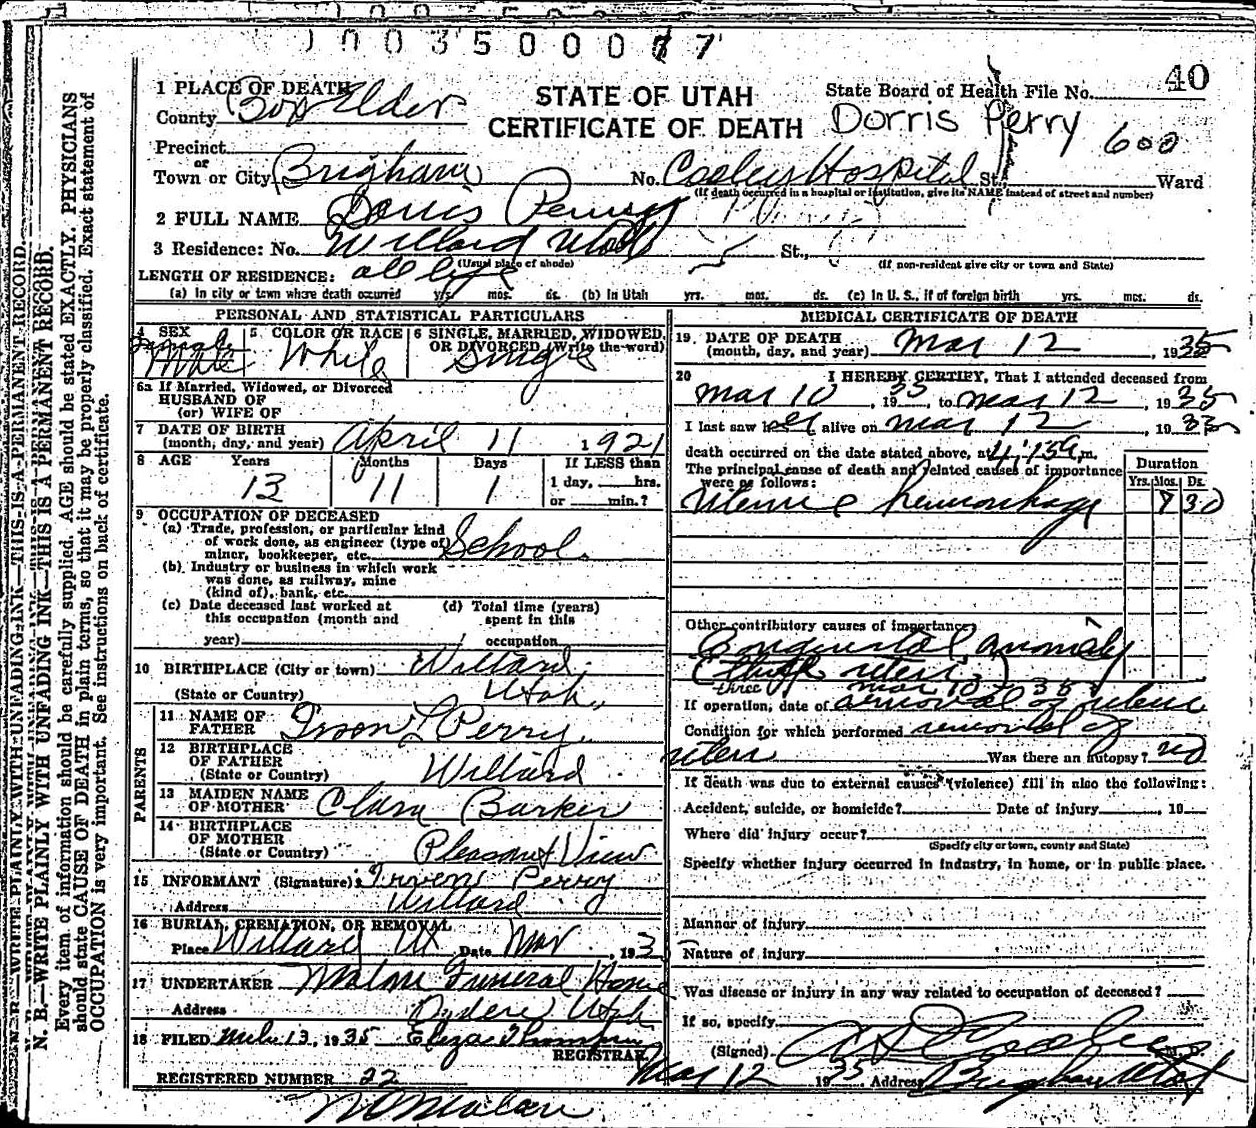 1003500077
40
1 PLACE OF DEATH
STATE OF UTAH
State Board of Health File No.
County Box Elder
CERTIFICATE OF DEATH
Dorris Perry 600
Precinct
or
Town or City Brigham No. Cooley Hospital St., Ward
(If death occurred in a hospital or institution, give its NAME instead of street and number)
2 FULL NAME Dorris Perry
3 Residence: No. Willard Utah St.,
(Usual place of abode) (If non-resident give city or town and State)
LENGTH OF RESIDENCE: all life
(a) In city or town where death occurred yrs. mos. ds. (b) In Utah yrs. mos. ds. (c) In U. S., if of foreign birth yrs. mos. ds.
PERSONAL AND STATISTICAL PARTICULARS
4 SEX Female Male
5 COLOR OR RACE White
6 SINGLE, MARRIED, WIDOWED, OR DIVORCED (Write the word) Single
6a If Married, Widowed, or Divorced
HUSBAND OF
(or) WIFE OF
7 DATE OF BIRTH
(month, day, and year) April 11 1921
8 AGE Years Months Days If LESS than
13 11 1 1 day, hrs.
or min.?
9 OCCUPATION OF DECEASED
(a) Trade, profession, or particular kind
of work done, as engineer (type of) School
miner, bookkeeper, etc.
(b) Industry or business in which work
was done, as railway, mine
(kind of), bank, etc.
(c) Date deceased last worked at (d) Total time (years)
this occupation (month and spent in this
year) occupation
10 BIRTHPLACE (City or town) Willard
(State or Country) Utah
PARENTS
11 NAME OF
FATHER L Perry
12 BIRTHPLACE
OF FATHER
(State or Country) Willard
13 MAIDEN NAME
OF MOTHER Clara Barker
14 BIRTHPLACE
OF MOTHER
(State or Country) Pleasant View
15 INFORMANT (Signature) Irven Perry
Address Willard
16 BURIAL, CREMATION, OR REMOVAL
Place Willard Ut Date Mar. 193
17 UNDERTAKER Malan Funeral Home
Address Ogden Utah
18 FILED Mch. 13, 1935 Eliza Thompson
REGISTRAR
REGISTERED NUMBER 22
N O Malan
MEDICAL CERTIFICATE OF DEATH
19 DATE OF DEATH
(month, day, and year) Mar 12, 1935
20 I HEREBY CERTIFY, That I attended deceased from
Mar 10, 1935, to Mar 12, 1935
I last saw her alive on Mar 12, 1935
death occurred on the date stated above, at 4:15 a m.
The principal cause of death and related causes of importance
were as follows:
Duration
Yrs. Mos. Ds.
Uterine hemorrhage
30
Other contributory causes of importance:
Congenital anomaly
uteri
three Mar 10 35
If operation, date of removal of
Condition for which performed removal of
uteri Was there an autopsy? no
If death was due to external causes (violence) fill in also the following:
Accident, suicide, or homicide? Date of injury , 19
Where did injury occur?
(Specify city or town, county and State)
Specify whether injury occurred in industry, in home, or in public place.
Manner of injury
Nature of injury
Was disease or injury in any way related to occupation of deceased?
If so, specify
(Signed) Cooley M. D.
May 12 1935 Address Brigham Utah
N. B.—WRITE PLAINLY WITH UNFADING INK—THIS IS A PERMANENT RECORD.
Every item of information should be carefully supplied. AGE should be stated EXACTLY. PHYSICIANS
should state CAUSE OF DEATH in plain terms, so that it may be properly classified. Exact statement of
OCCUPATION is very important. See instructions on back of certificate.